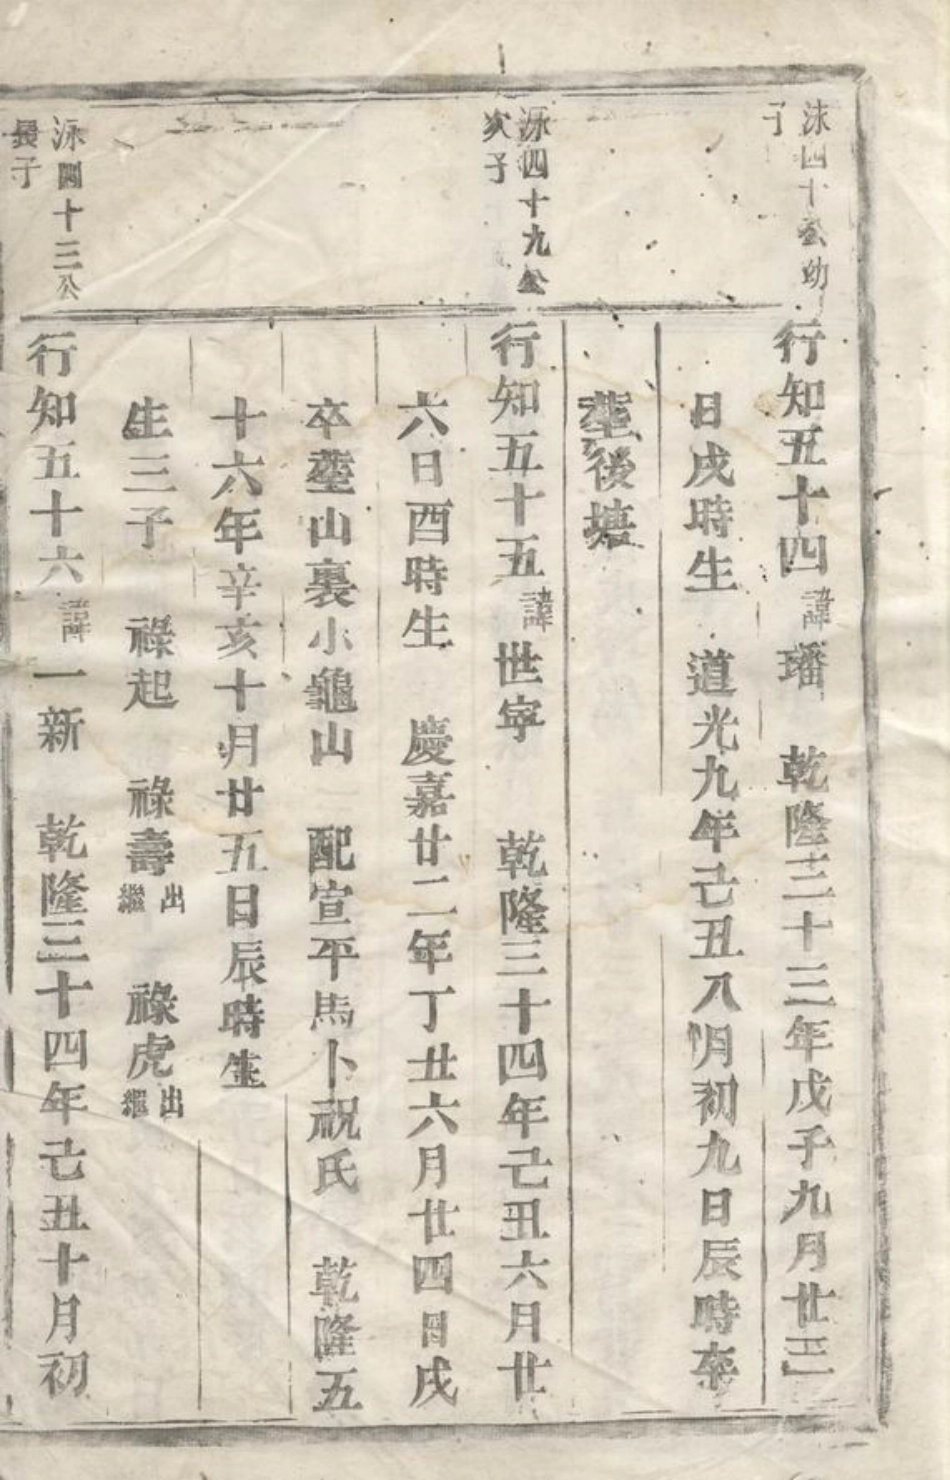 泳四十公幼
子
行知五十四諱璠 乾隆三十三年戊子九月廿三
日戌時生 道光九年己丑八月初九日辰時卒
塟後塘
泳四十九公
次子
行知五十五諱世寧 乾隆三十四年己丑六月廿
六日酉時生 慶嘉廿二年丁丑六月廿四日戌
卒塟山裏小龜山 配宣平馬卜祝氏 乾隆五
十六年辛亥十月廿五日辰時生
生三子 祿起 祿壽出繼 祿虎出繼
泳四十三公
長子
行知五十六諱一新 乾隆三十四年己丑十月初